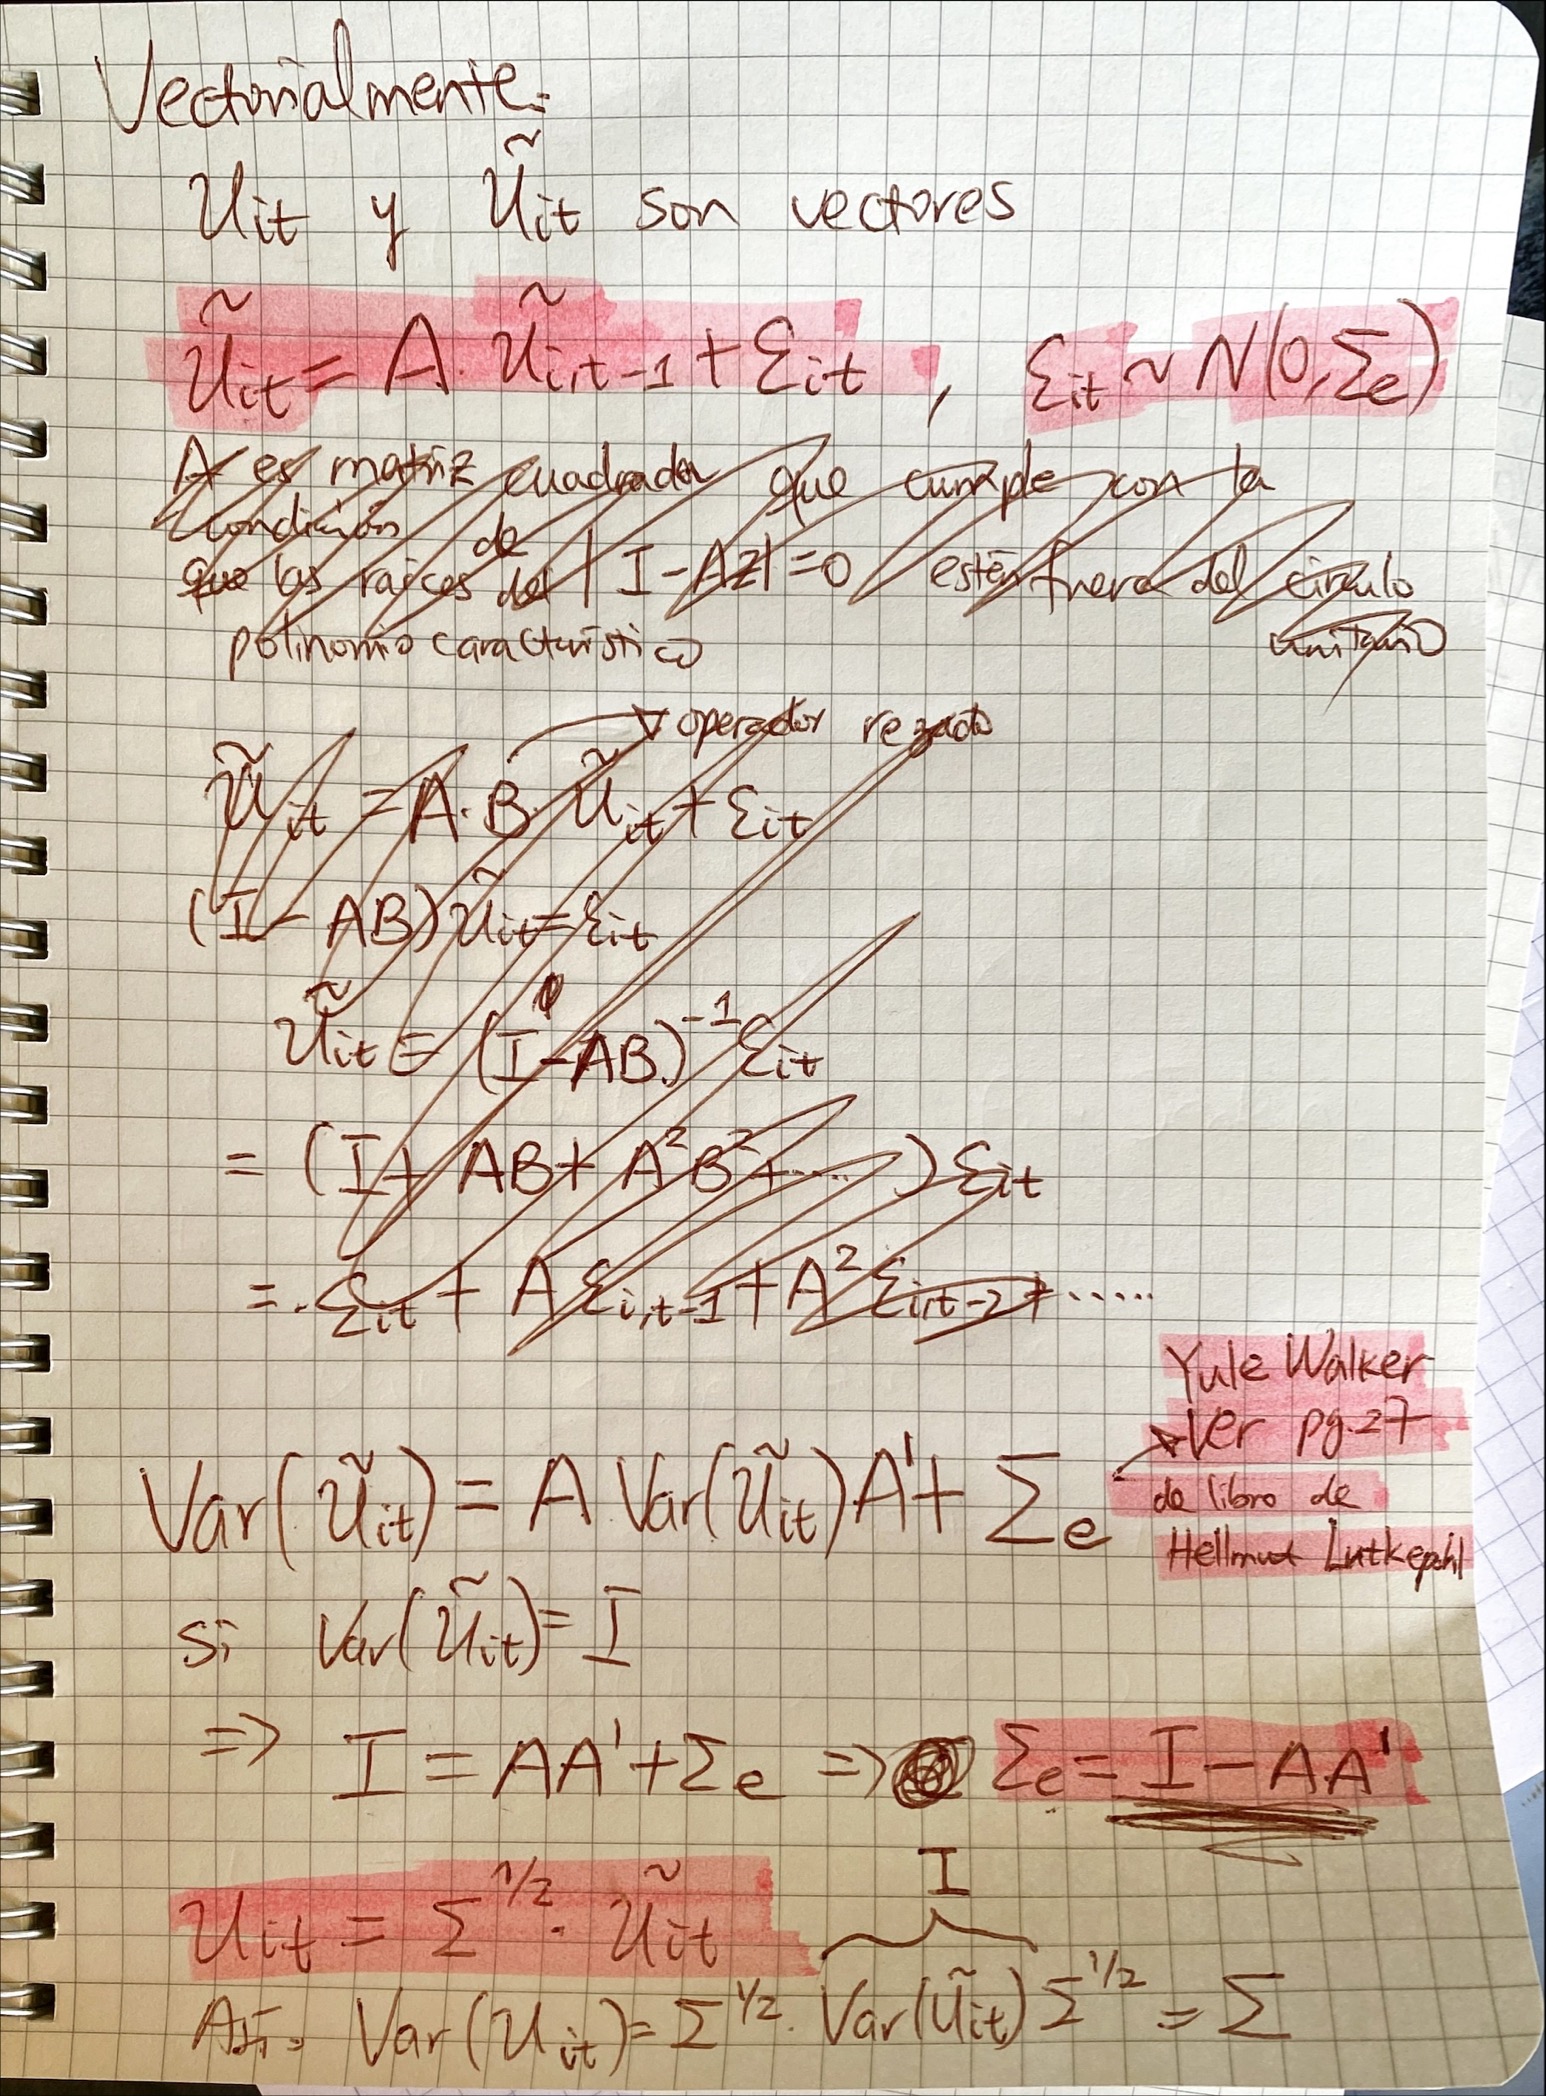 Vectorialmente:
Uit y Ũit son vectores
Ũit = A. Ũi,t-1 + Ɛit , Ɛit ~ N(0,Σe)
A es matriz cuadrada que cumple con la
condición de
que las raíces del | I-AZ|=0 estén fuera del círculo
polinomio característico unitario
operador rezado
Ũit = A.B. Ũit + Ɛit
(I - AB) Ũit = Ɛit
Ũit = (I-AB)⁻¹ Ɛit
= (I+ AB+ A²B²+....) Ɛit
= Ɛit + A Ɛi,t-1 + A² Ɛi,t-2 + .....
Yule Walker
Ver pg.27
de libro de
Hellmut Lutkepohl
Var(Ũit) = A Var(Ũit)A' + Σe
si Var(Ũit) = I
=> I = AA' + Σe => Σe = I - AA'
I
Uit = Σ^1/2 . Ũit
Así: Var(Uit) = Σ^1/2. Var(Ũit) Σ^1/2 = Σ